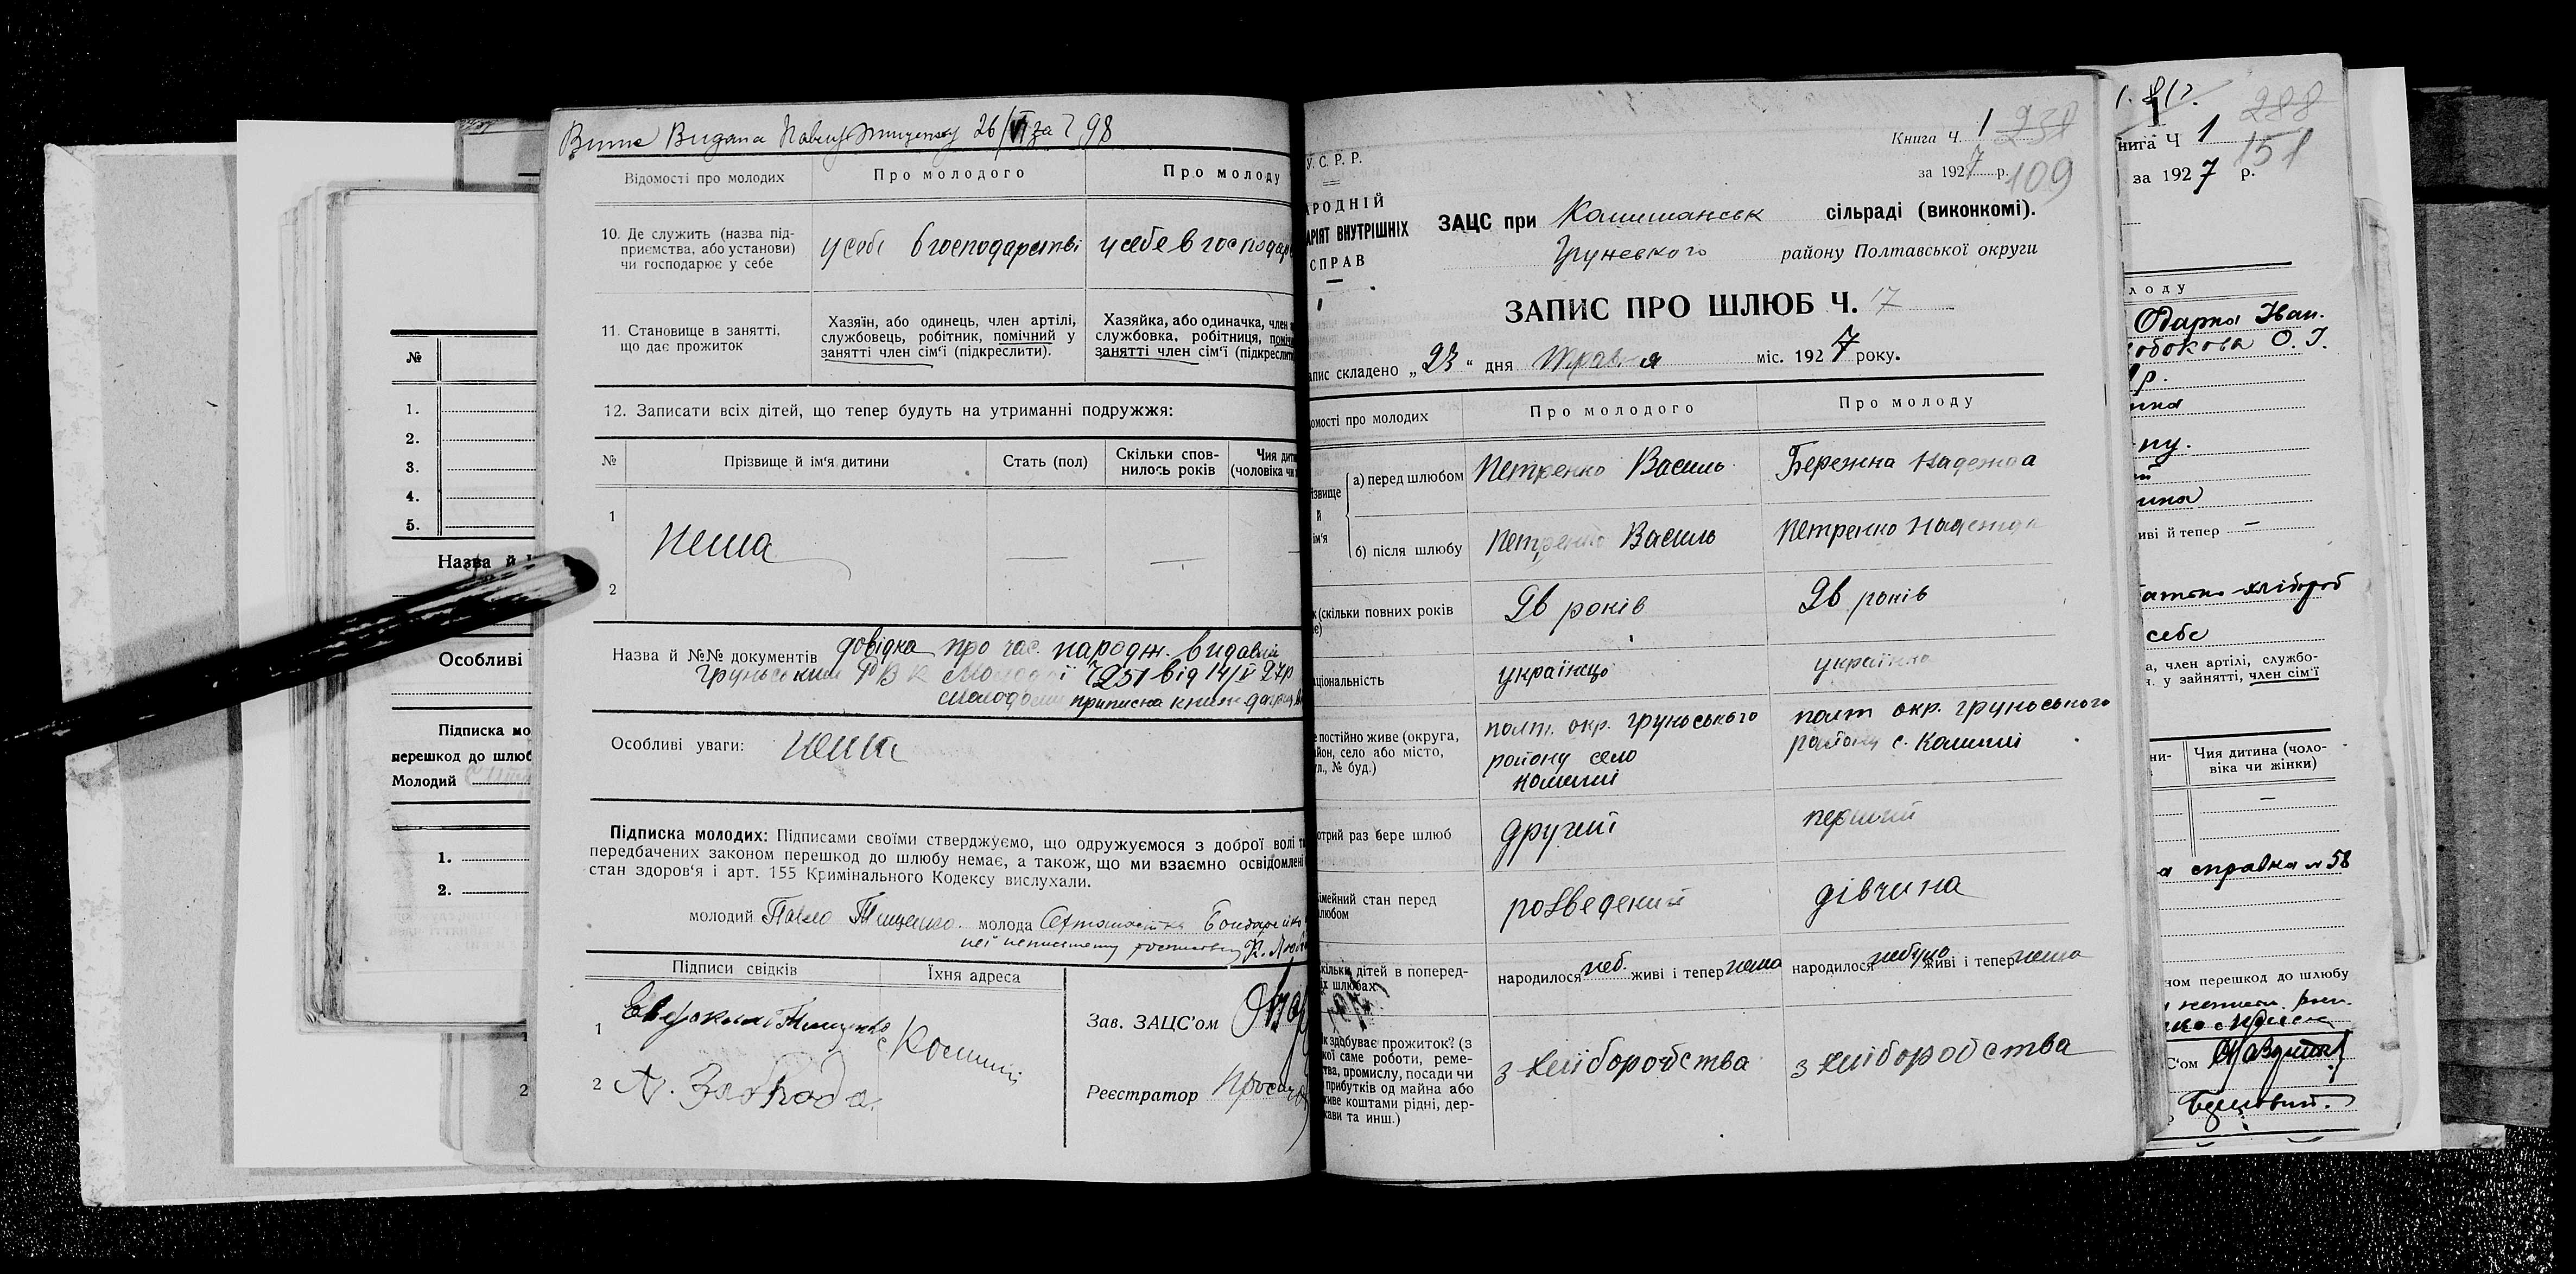 №
1.
2.
3.
4.
5.
Назва й
Особливі
Підписка мо
перешкод до шлюб
Молодий
1.
2.
Виписка Видана Павлу Тищенку 26/VI за № 98
Відомості про молодих
Про молодого
Про молоду
10. Де служить (назва під-
приємства, або установи)
чи господарює у себе
у себе в господарстві
у себе в господар
11. Становище в занятті,
що дає прожиток
Хазяїн, або одинець, член артілі,
службовець, робітник, помічний у
занятті член сім'ї (підкреслити).
Хазяйка, або одиначка, член
службовка, робітниця, поміч
занятті член сім'ї (підкреслит
12. Записати всіх дітей, що тепер будуть на утриманні подружжя:
№
Прізвище й ім'я дитини
Стать (пол)
Скільки спов-
нилось років
Чия дит
(чоловіка чи
1
Нема
2
Назва й №№ документів довідка про час народж. видавній
Груньським РВК Молодої № 251 від 14/V 27р
Молодому приписна книж
Особливі уваги: нема
Підписка молодих: Підписами своїми стверджуємо, що одружуємося з доброї волі т
передбачених законом перешкод до шлюбу немає, а також, що ми взаємно освідомлені
стан здоров'я і арт. 155 Кримінального Кодексу вислухали.
молодий Павло Тищенко молода Бондаренко
неї неписьмену
Підписи свідків
Їхня адреса
1
Тищенко
с Комиші
2
Зав. ЗАЦС'ом
Реєстратор
У. С. Р. Р.
АРОДНІЙ
АРІЯТ ВНУТРІШНІХ
СПРАВ
Книга Ч. 1 231
за 1927 р. 109
ЗАЦС при Комишанськ сільраді (виконкомі).
Груневского району Полтавської округи
ЗАПИС ПРО ШЛЮБ Ч. 17
апис складено „23" дня Травня міс. 1927 року.
омості про молодих
Про молодого
Про молоду
ізвище
й
ім'я
а) перед шлюбом
Петренко Василь
Бережна Надежда
б) після шлюбу
Петренко Василь
Петренко Надежда
к (скільки повних років
е)
26 років
26 років
аціональність
українець
українка
е постійно живе (округа,
йон, село або місто,
ул., № буд.)
полт. окр. груньського
району село
Комиші
полт окр. груньського
району с. Комиші
отрий раз бере шлюб
другий
первий
імейний стан перед
любом
розведений
дівчина
кільки дітей в поперед-
іх шлюбах
народилося неб. живі і тепер нема
народилося небуло живі і тепер нема
к здобуває прожиток? (з
кої саме роботи, реме-
тва, промислу, посади чи
прибутків од майна або
живе коштами рідні, дер-
жави та инш.)
з хліборобства
з хліборобства
288
нига Ч 1
151
за 1927 р.
лоду
Одарка Іван.
О. І.
р.
иві й тепер —
хлібороб
себе
а, член артілі, службо-
н. у зайнятті, член сім'ї
ни-
Чия дитина (чоло-
віка чи жінки)
—
а справка № 58
ном перешкод до шлюбу
С'ом